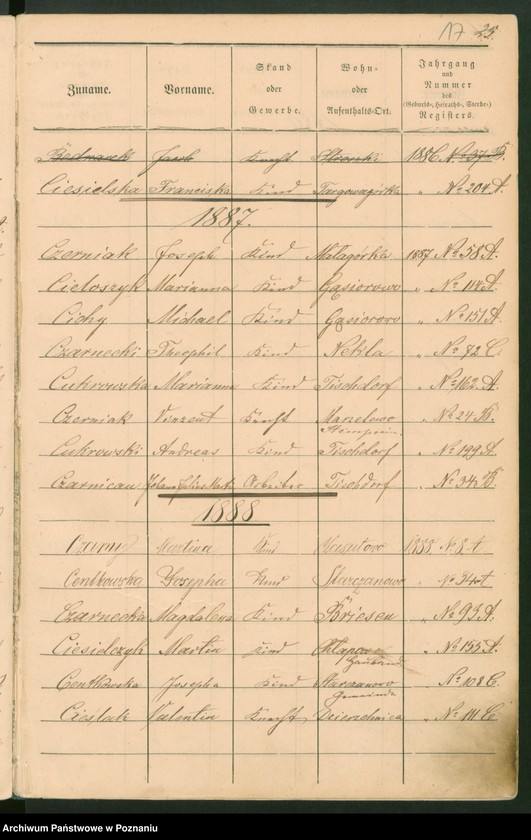 17 25.
Zuname. Vorname. Stand oder Gewerbe. Wohn- oder Aufenthalts-Ort. Jahrgang und Nummer des (Geburts-, Heiraths-, Sterbe-) Registers.
Bednarek Jacob Knecht 1886. No 37 B.
Ciesielska Franciska Kind Targowagórka " No 204 A.
1887.
Czerniak Joseph Kind Malagórka 1887 No 58 A.
Cieloszyk Marianna Kind Gąsiorowo " No 114 A.
Cichy Michael Kind Gąsiorowo " No 151 A.
Czarnecki Theophil Kind Nekla " No 72 C.
Cukrowska Marianna Kind Tischdorf " No 162 A.
Czerniak Vinzent Knecht " No 24 B.
Cukrowski Andreas Kind Tischdorf " No 199 A.
Czarnican Arbeiter Tischdorf " No 34 B.
1888
Czerny Martina Kind 1888 No 8 A
Centkowska Josepha Kind Starczanowo " No 34 A
Czarnecka Magdalena Kind Briesen " No 93 A.
Ciesielczyk Martin Kind Chlapowo Hauland " No 155 A.
Centkowska Josepha Kind Starczanowo Gemeinde " No 108 C.
Cieslak Valentin Knecht Dzierzchnica " No 111 C
Archiwum Państwowe w Poznaniu